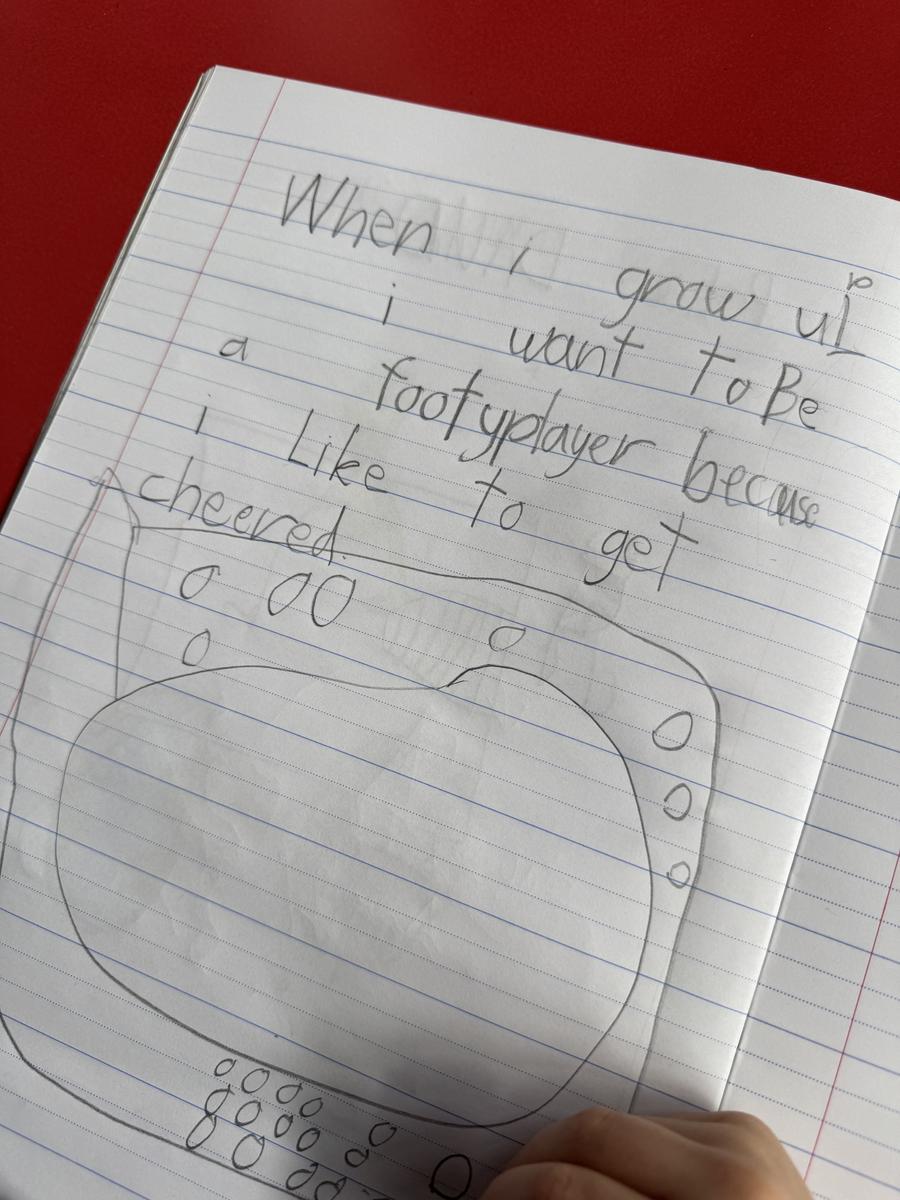 When i grow up
i want to Be
a footyplayer because
i Like to get
cheered.